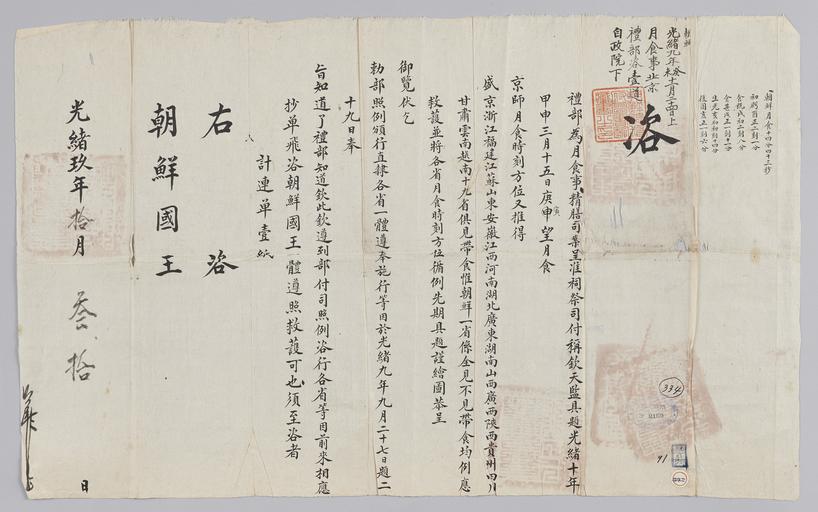 朝鮮月食十四分四十三秒
初虧酉正三刻一分
食既戌初三刻八分
食甚
生光亥初初刻十四分
復圓亥正一刻六分
光緒九年癸未十二月二十四日上
月食事北京
禮部咨壹道
自政院下
咨
禮部為月食事精膳司案呈准祠祭司付稱欽天監具題光緒十年
甲申三月十五日庚申寅望月食
京師月食時刻方位又推得
盛京浙江福建江蘇山東安徽江西河南湖北廣東湖南山西廣西陝西貴州四川
甘肅雲南越南十九省俱見帶食惟朝鮮一省係全見不見帶食均例應
救護並將各省月食時刻方位循例先期具題謹繪圖恭呈
御覽伏乞
勅部照例頒行直隸各省一體遵奉施行等因於光緒九年九月二十七日題二
十九日奉
旨知道了禮部知道欽此欽遵到部付司照例咨行各省等因前來相應
抄單飛咨朝鮮國王一體遵照救護可也須至咨者
計連單壹紙
右咨
朝鮮國王
光緒玖年拾月叁拾日
334
2169
71